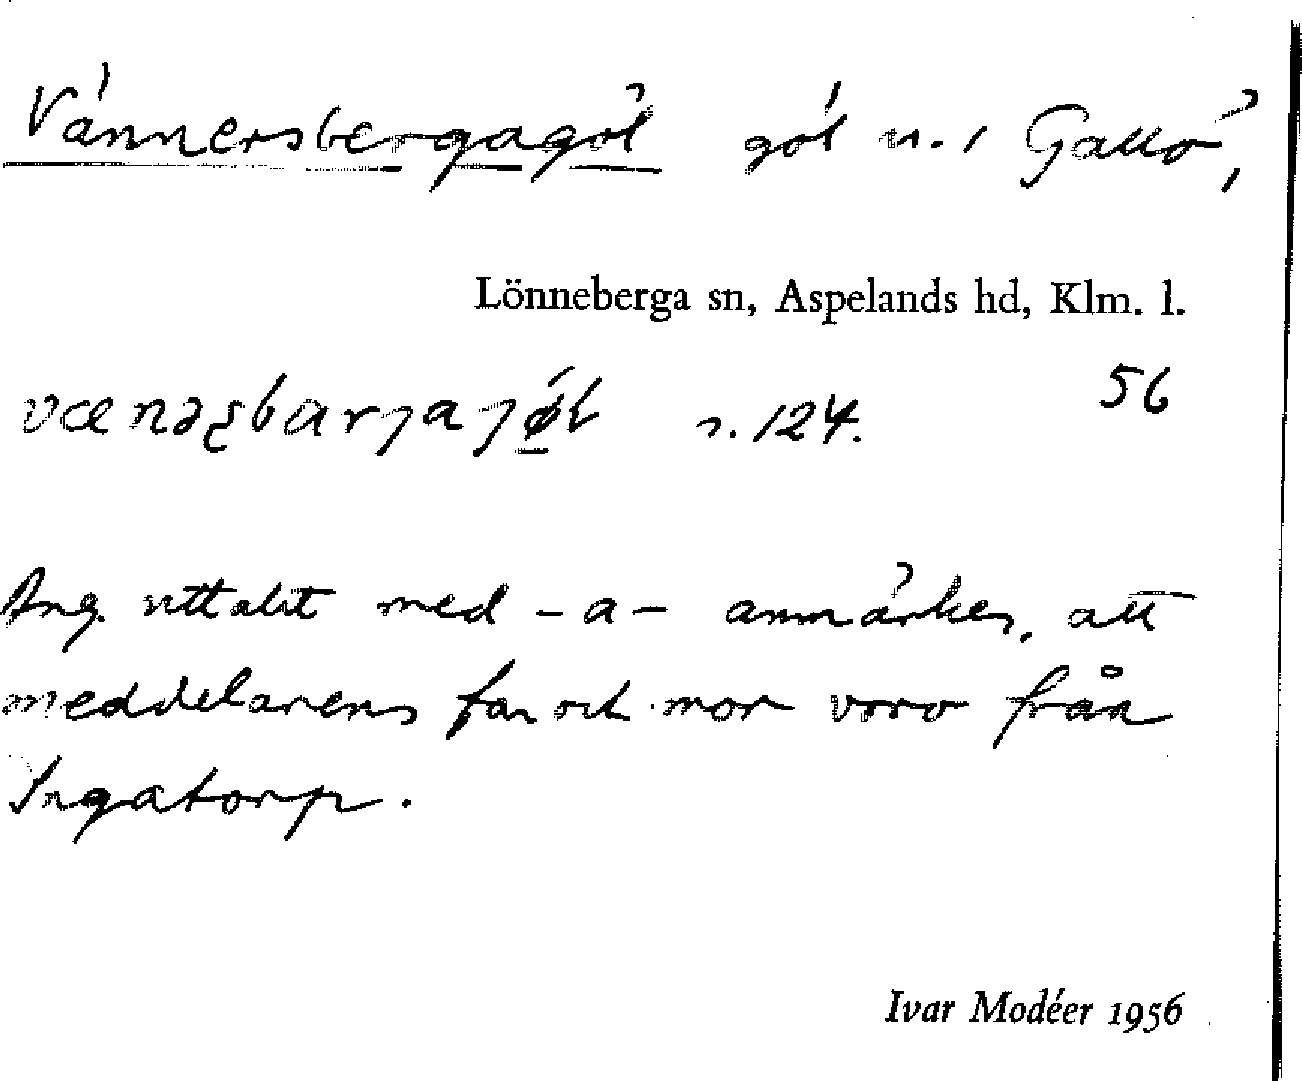 Vännersbergagöl göl n. i Gallö,
Lönneberga sn, Aspelands hd, Klm. l.
56
r. 124.
Ang. uttalet med -a- anmärkes, att
meddelarens far och mor voro från
Ingatorp.
Ivar Modéer 1956